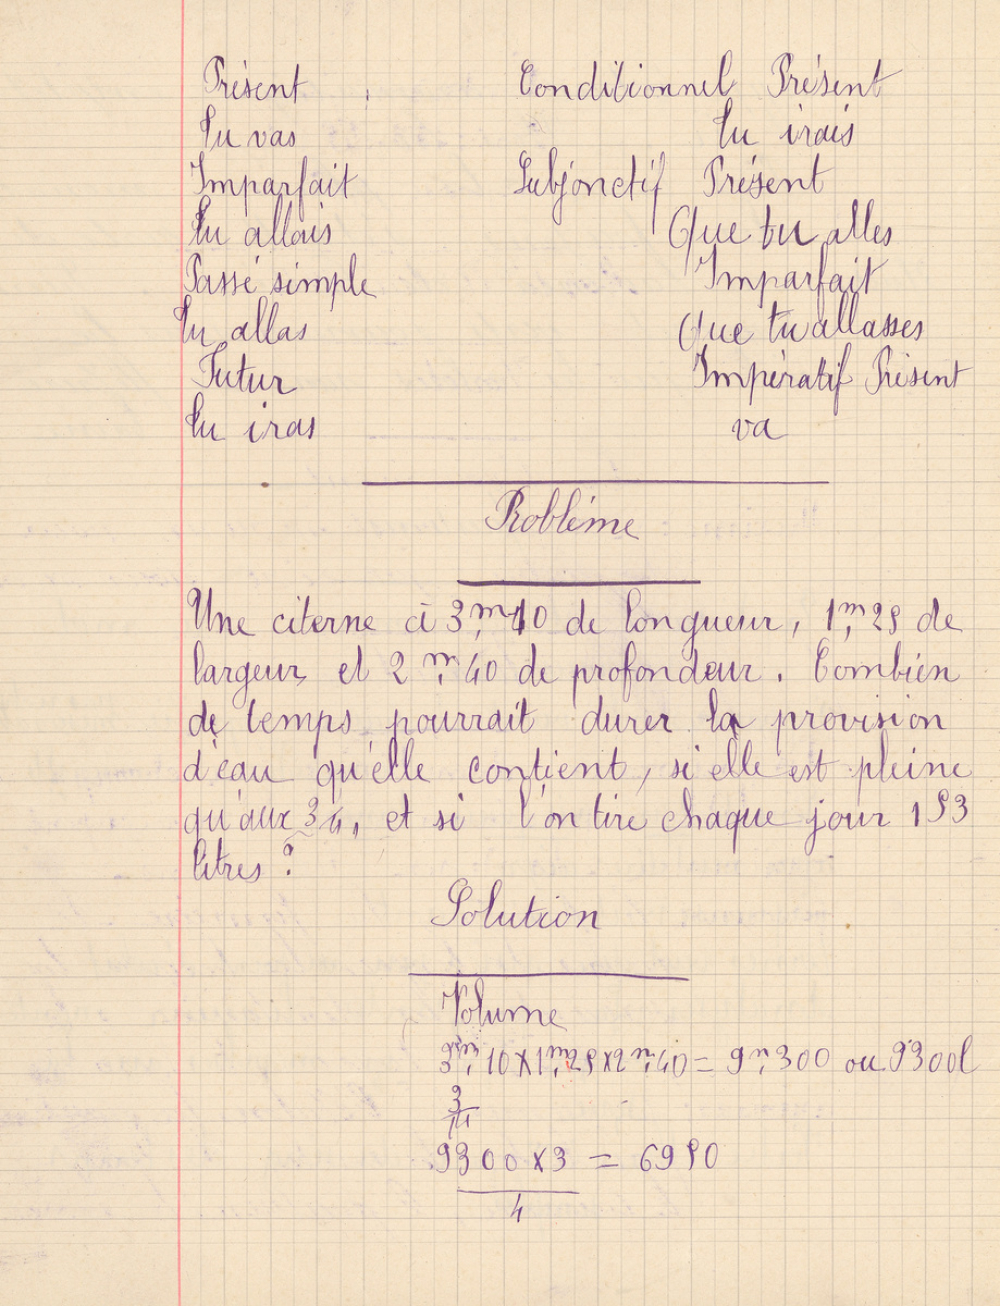 Présent
Tu vas
Imparfait
Tu allais
Passé simple
Tu allas
Futur
Tu iras
Conditionnel Présent
Tu irais
Subjonctif Présent
Que tu alles
Imparfait
Que tu allasses
Impératif Présent
va
Probléme
Une citerne à 3m,10 de longueur, 1m,25 de
largeur, et 2m,40 de profondeur. Combien
de temps pourrait durer la provision
d'eau qu'elle contient, si elle est pleine
qu'aux 3/4, et si l'on tire chaque jour 153
litres ?
Solution
Volume
3m,10 X 1m,25 x 2m,40 = 9m,300 ou 9300l
3/4
9300 x 3 = 6950
4